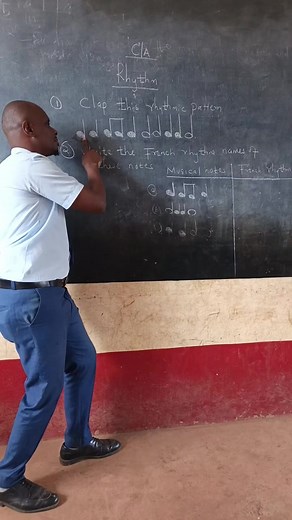 C/A
Rhythm
① Clap this rhythmic pattern
② Write the French rhythm names of
these notes
Musical notes French rhythm
a)
b)
c)